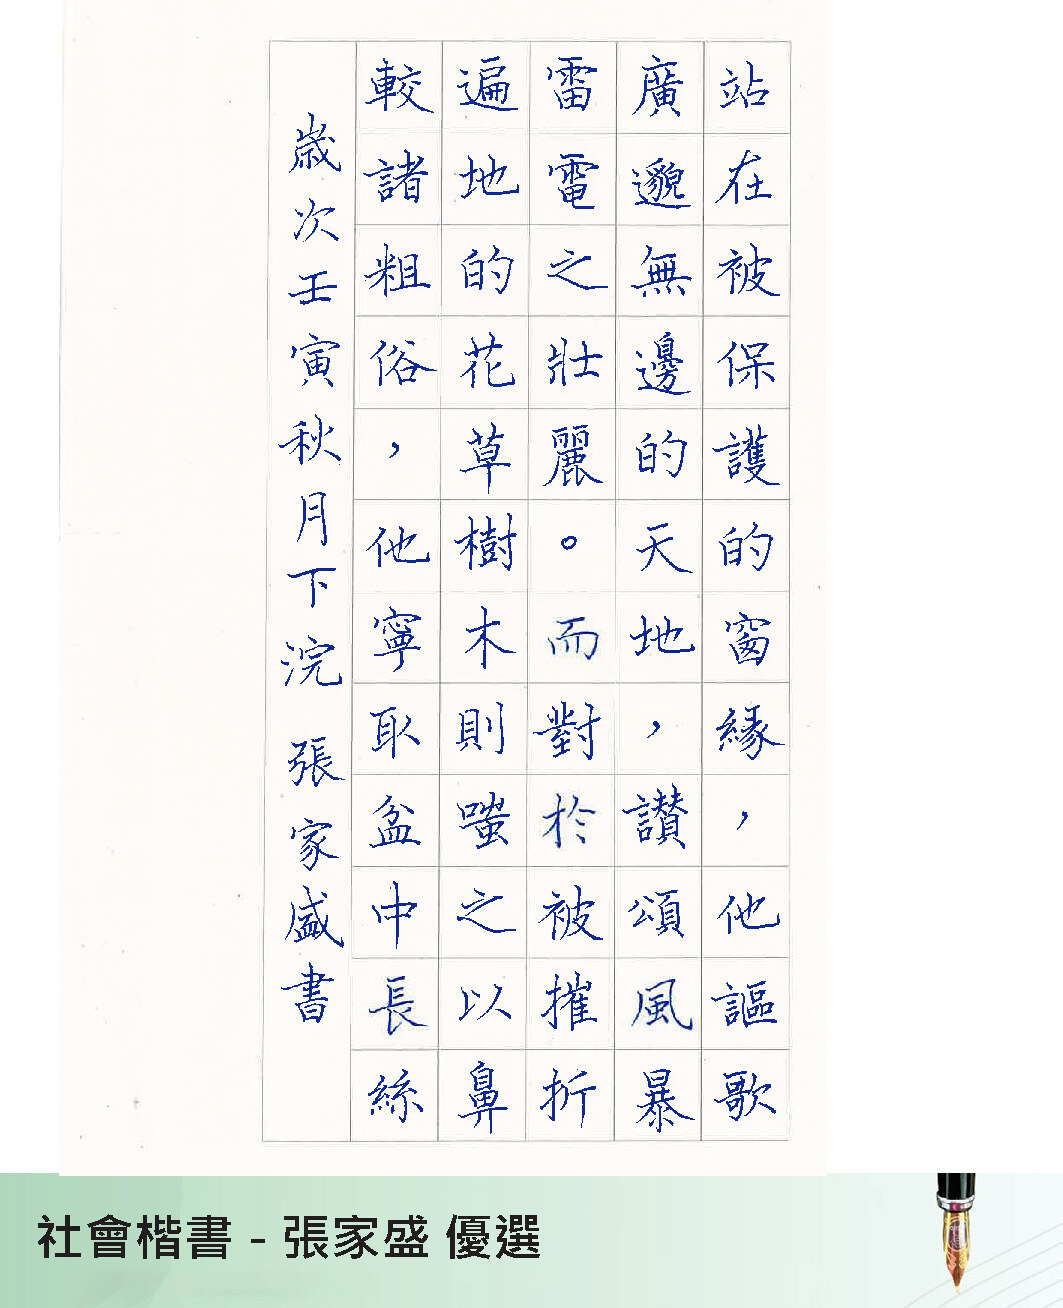 站在被保護的窗緣，他謳歌
廣邈無邊的天地，讚頌風暴
雷電之壯麗。而對於被摧折
遍地的花草樹木則嗤之以鼻
較諸粗俗，他寧取盆中長絲
歲次壬寅秋月下浣 張家盛書
社會楷書 - 張家盛 優選